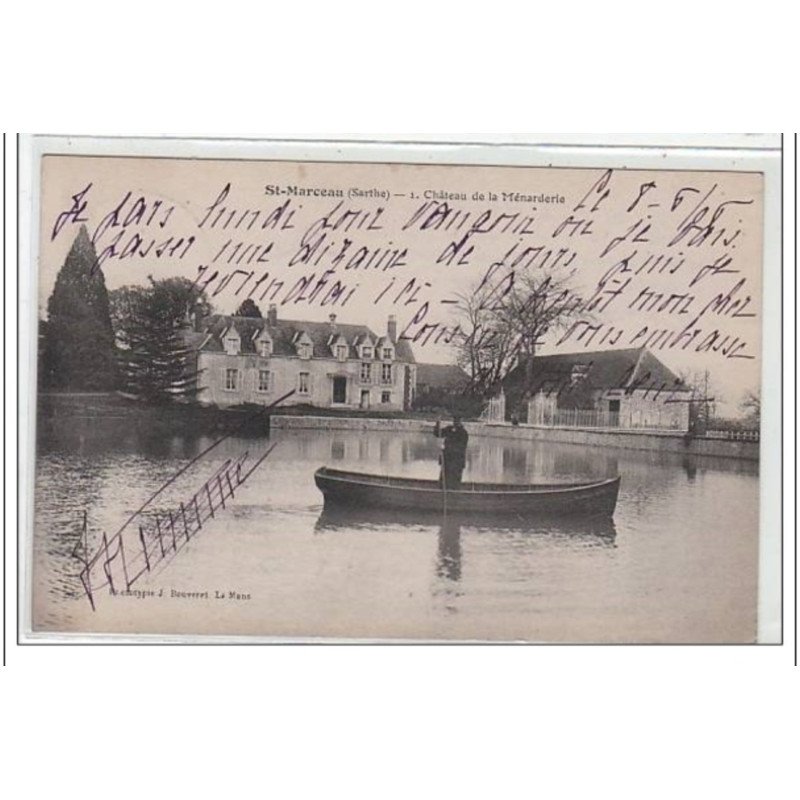 St-Marceau (Sarthe) — 1. Château de la Ménarderie
Le 8-6
Je pars lundi pour Vaugoin ou je vais
passer une dizaine de jours, puis je
reviendrai ici - à bientôt mon cher
je vous embrasse
Phototypie J. Bouveret. Le Mans